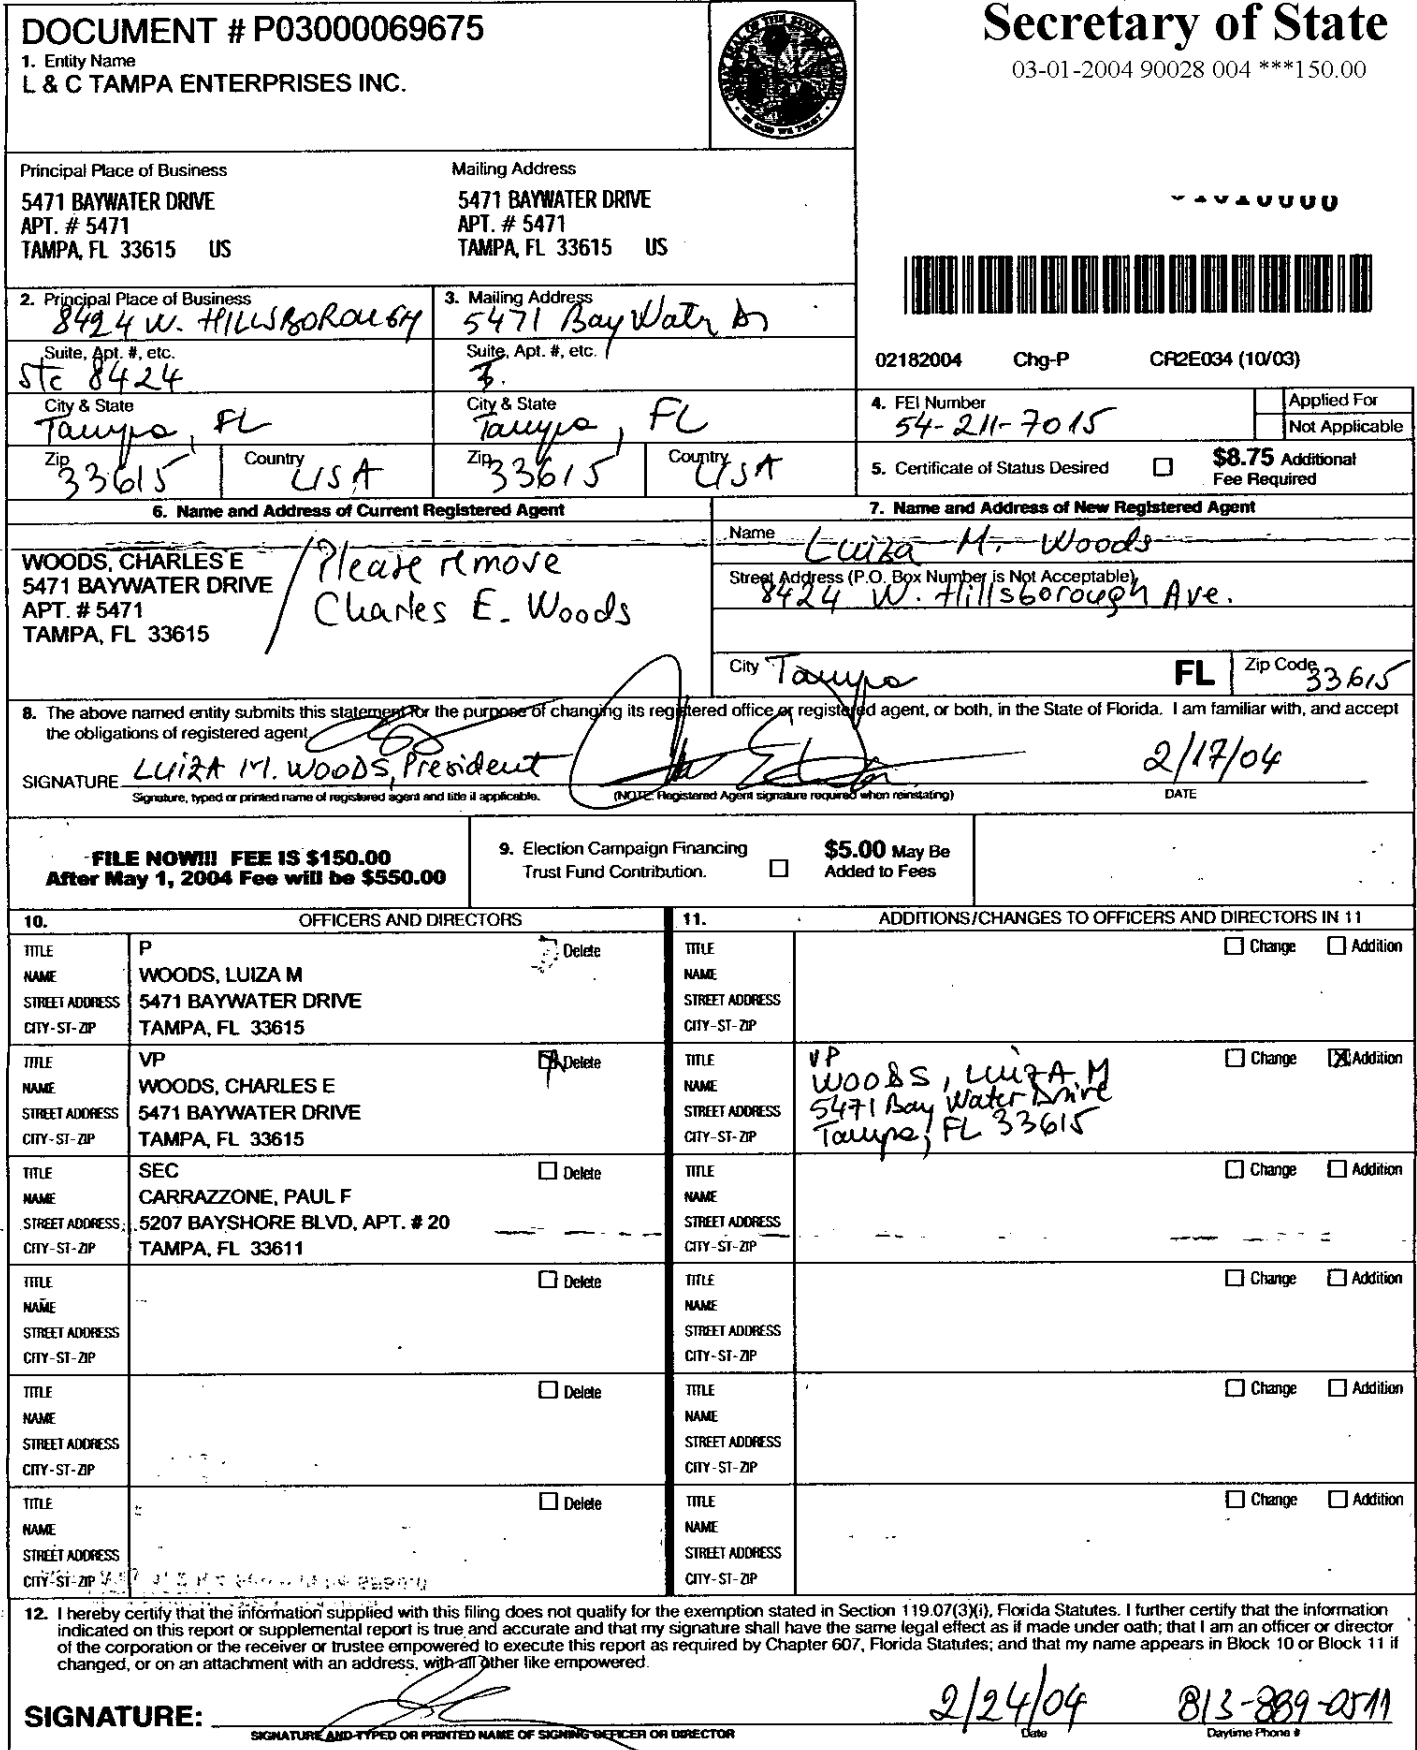 DOCUMENT # P03000069675
1. Entity Name
L & C TAMPA ENTERPRISES INC.
Secretary of State
03-01-2004 90028 004 ***150.00
Principal Place of Business
5471 BAYWATER DRIVE
APT. # 5471
TAMPA, FL 33615 US
Mailing Address
5471 BAYWATER DRIVE
APT. # 5471
TAMPA, FL 33615 US
2. Principal Place of Business
8424 W. HILLSBOROUGH
3. Mailing Address
5471 Bay Water Dr
Suite, Apt. #, etc.
Ste 8424
Suite, Apt. #, etc.
City & State
Tampa, FL
City & State
Tampa, FL
Zip
33615
Country
USA
Zip
33615
Country
USA
02182004 Chg-P CR2E034 (10/03)
4. FEI Number
54-211-7015
Applied For
Not Applicable
5. Certificate of Status Desired
$8.75 Additional
Fee Required
6. Name and Address of Current Registered Agent
WOODS, CHARLES E
5471 BAYWATER DRIVE
APT. # 5471
TAMPA, FL 33615
Please remove
Charles E. Woods
7. Name and Address of New Registered Agent
Name Luiza M. Woods
Street Address (P.O. Box Number is Not Acceptable)
8424 W. Hillsborough Ave.
City Tampa FL Zip Code 33615
8. The above named entity submits this statement for the purpose of changing its registered office or registered agent, or both, in the State of Florida. I am familiar with, and accept
the obligations of registered agent.
SIGNATURE LUIZA M. WOODS, President 2/17/04
Signature, typed or printed name of registered agent and title if applicable. (NOTE: Registered Agent signature required when reinstating) DATE
FILE NOW!!! FEE IS $150.00
After May 1, 2004 Fee will be $550.00
9. Election Campaign Financing
Trust Fund Contribution.
$5.00 May Be
Added to Fees
10. OFFICERS AND DIRECTORS
TITLE P Delete
NAME WOODS, LUIZA M
STREET ADDRESS 5471 BAYWATER DRIVE
CITY-ST-ZIP TAMPA, FL 33615
TITLE VP Delete
NAME WOODS, CHARLES E
STREET ADDRESS 5471 BAYWATER DRIVE
CITY-ST-ZIP TAMPA, FL 33615
TITLE SEC Delete
NAME CARRAZZONE, PAUL F
STREET ADDRESS 5207 BAYSHORE BLVD, APT. # 20
CITY-ST-ZIP TAMPA, FL 33611
TITLE Delete
NAME
STREET ADDRESS
CITY-ST-ZIP
TITLE Delete
NAME
STREET ADDRESS
CITY-ST-ZIP
TITLE Delete
NAME
STREET ADDRESS
CITY-ST-ZIP
11. ADDITIONS/CHANGES TO OFFICERS AND DIRECTORS IN 11
TITLE Change Addition
NAME
STREET ADDRESS
CITY-ST-ZIP
TITLE VP Change Addition
NAME WOODS, LUIZA M
STREET ADDRESS 5471 Bay Water Drive
CITY-ST-ZIP Tampa, FL 33615
TITLE Change Addition
NAME
STREET ADDRESS
CITY-ST-ZIP
TITLE Change Addition
NAME
STREET ADDRESS
CITY-ST-ZIP
TITLE Change Addition
NAME
STREET ADDRESS
CITY-ST-ZIP
TITLE Change Addition
NAME
STREET ADDRESS
CITY-ST-ZIP
12. I hereby certify that the information supplied with this filing does not qualify for the exemption stated in Section 119.07(3)(i), Florida Statutes. I further certify that the information
indicated on this report or supplemental report is true and accurate and that my signature shall have the same legal effect as if made under oath; that I am an officer or director
of the corporation or the receiver or trustee empowered to execute this report as required by Chapter 607, Florida Statutes; and that my name appears in Block 10 or Block 11 if
changed, or on an attachment with an address, with all other like empowered.
SIGNATURE: 2/24/04 813-889-0511
SIGNATURE AND TYPED OR PRINTED NAME OF SIGNING OFFICER OR DIRECTOR Date Daytime Phone #